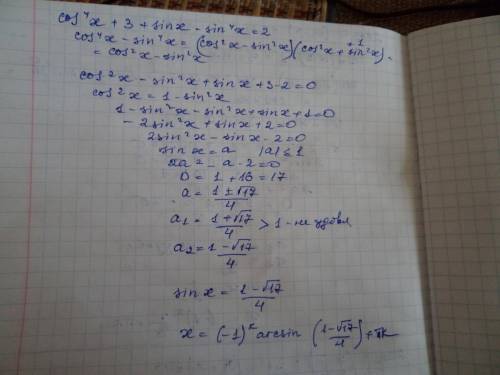 cos⁴x + 3 + sinx - sin⁴x = 2
cos⁴x - sin⁴x = (cos²x - sin²x)(cos²x + sin²x)
+1
= cos²x - sin²x
cos²x - sin²x + sinx + 3 - 2 = 0
cos²x = 1 - sin²x
1 - sin²x - sin²x + sinx + 1 = 0
- 2sin²x + sinx + 2 = 0
2sin²x - sinx - 2 = 0
sin x = a |a| ≤ 1
2a² - a - 2 = 0
D = 1 + 16 = 17
a = (1 ± √17)/4
a₁ = (1 + √17)/4 > 1 - не удовл
a₂ = (1 - √17)/4
sin x = (1 - √17)/4
x = (-1)ᵏ arcsin ((1 - √17)/4) + πk